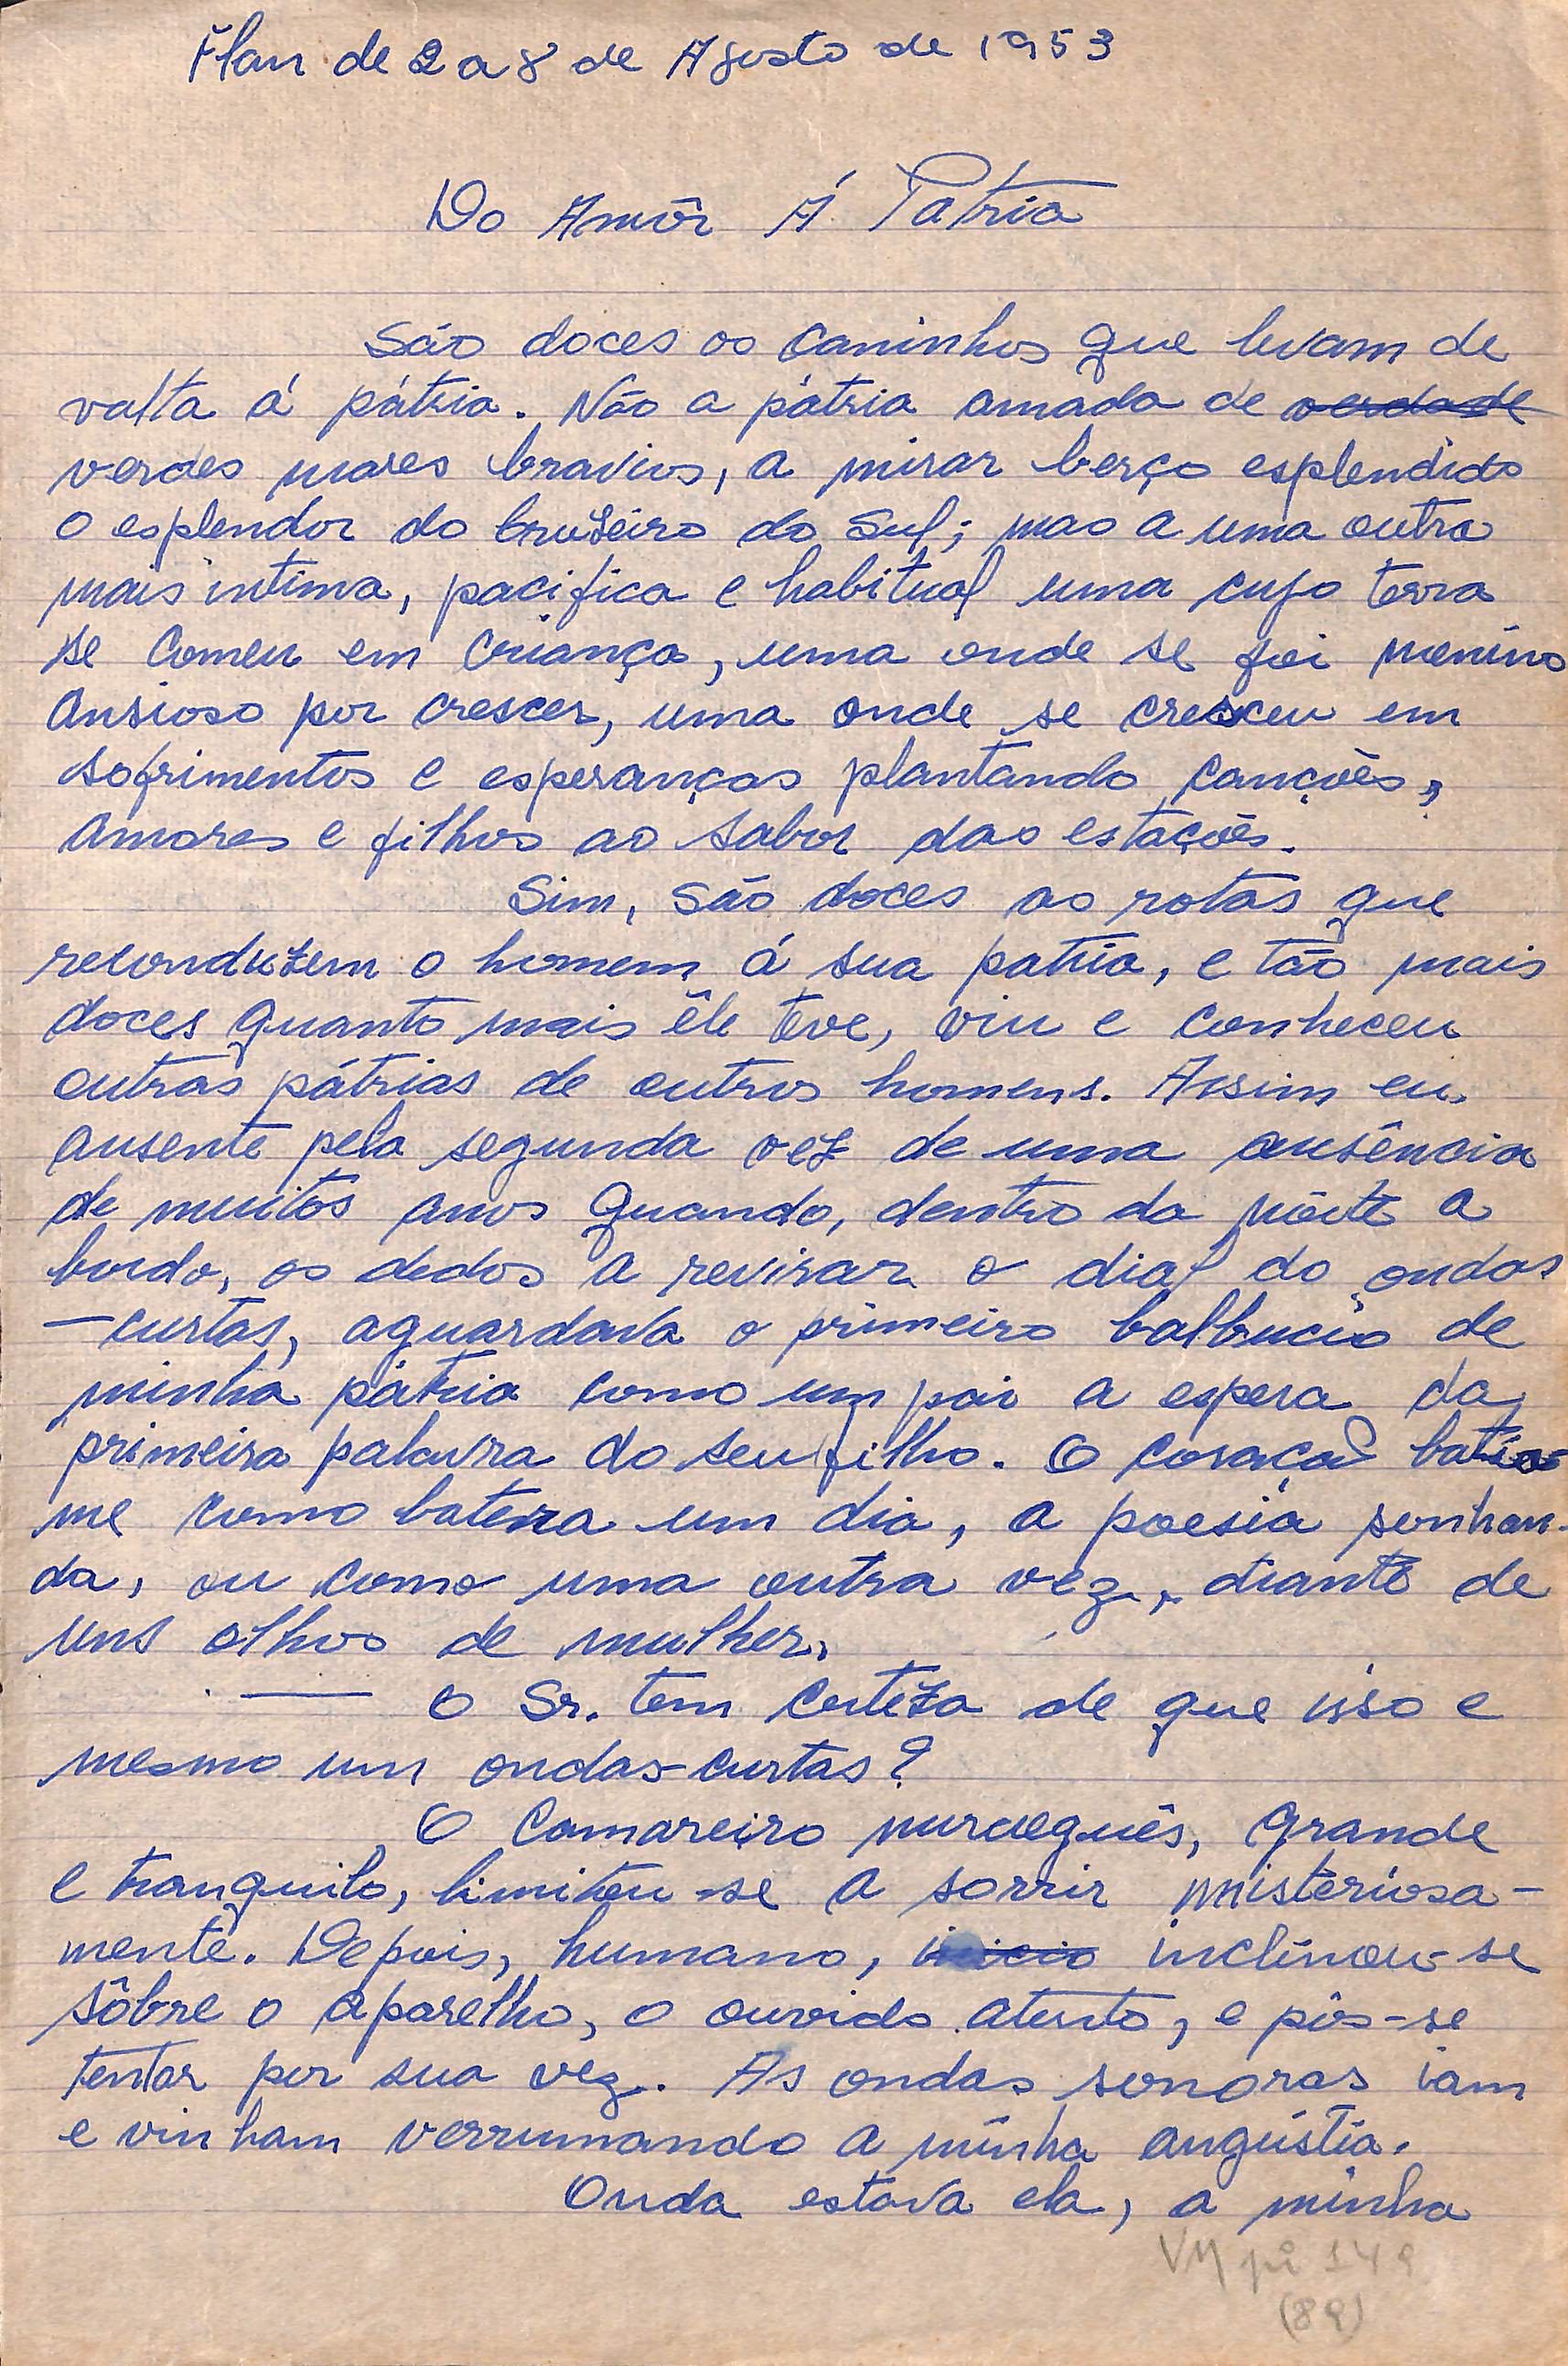 Flan de 2 a 8 de Agosto de 1953
Do Amôr Á Patria
São doces os caminhos que levam de
volta á pátria. Não a pátria amada de verdade
verdes mares bravios, a mirar berço esplendido
o esplendor do Cruzeiro do Sul; mas a uma outra
mais intima, pacifica e habitual uma cuja terra
se comeu em criança, uma onde se foi menino
ansioso por crescer, uma onde se cresceu em
sofrimentos e esperanças plantando canções,
amores e filhos ao sabor das estações.
Sim, são doces as rotas que
reconduzem o homem á sua patria, e tão mais
doces quanto mais êle teve, viu e conheceu
outras pátrias de outros homens. Assim eu,
ausente pela segunda vez de uma ausência
de muitos anos quando, dentro da nôite a
bordo, os dedos a revirar o dial do ondas
-curtas, aguardava o primeiro balbucio de
minha pátria como um pai a espera da
primeira palavra do seu filho. O coração batia-
me como batera um dia, a poesia sonhan-
da, ou como uma outra vez, diante de
uns olhos de mulher.
— O Sr. tem certeza de que isso e
mesmo um ondas-curtas?
O Camareiro norueguês, grande
e tranquilo, limitou-se a sorrir misteriosa-
mente. Depois, humano, inicio inclinou-se
sôbre o aparelho, o ouvido atento, e pôs-se
tentar por sua vez. As ondas sonoras iam
e vinham verrumando a minha angústia.
Onda estava ela, a minha
VM pi 149
(89)